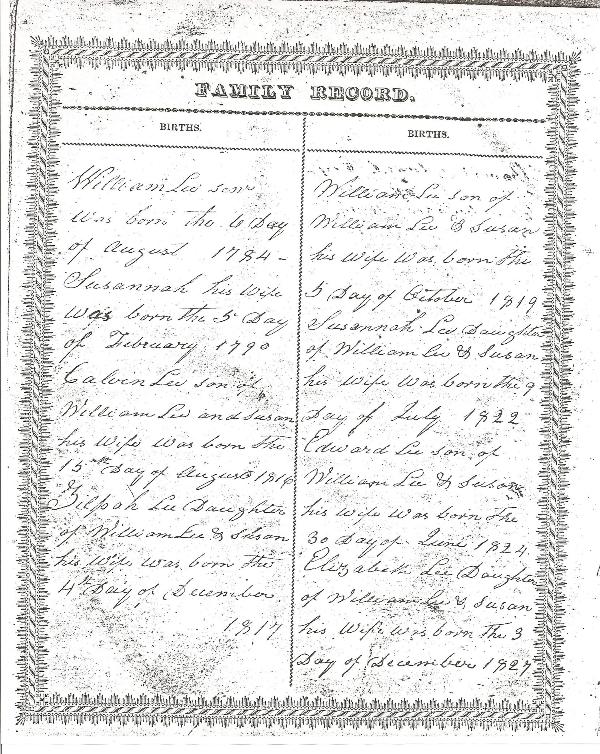 FAMILY RECORD.
BIRTHS.
William Lee son
was born the 6 Day
of August 1784 -
Susannah his Wife
was born the 5 Day
of February 1790
Calvin Lee son of
William Lee and Susan
his Wife was born the
15th Day of August 1816
Zilpah Lee Daughter
of William Lee & Susan
his Wife was born the
4th Day of December
1817
BIRTHS.
William Lee son of
William Lee & Susan
his Wife Was born the
5 Day of October 1819
Susannah Lee Daughter
of William Lee & Susan
his Wife Was born the 9
Day of July 1822
Edward Lee son of
William Lee & Susan
his Wife Was born the
30 Day of June 1824
Elizabeth Lee Daughter
of William Lee & Susan
his Wife Was born the 3
Day of December 1827